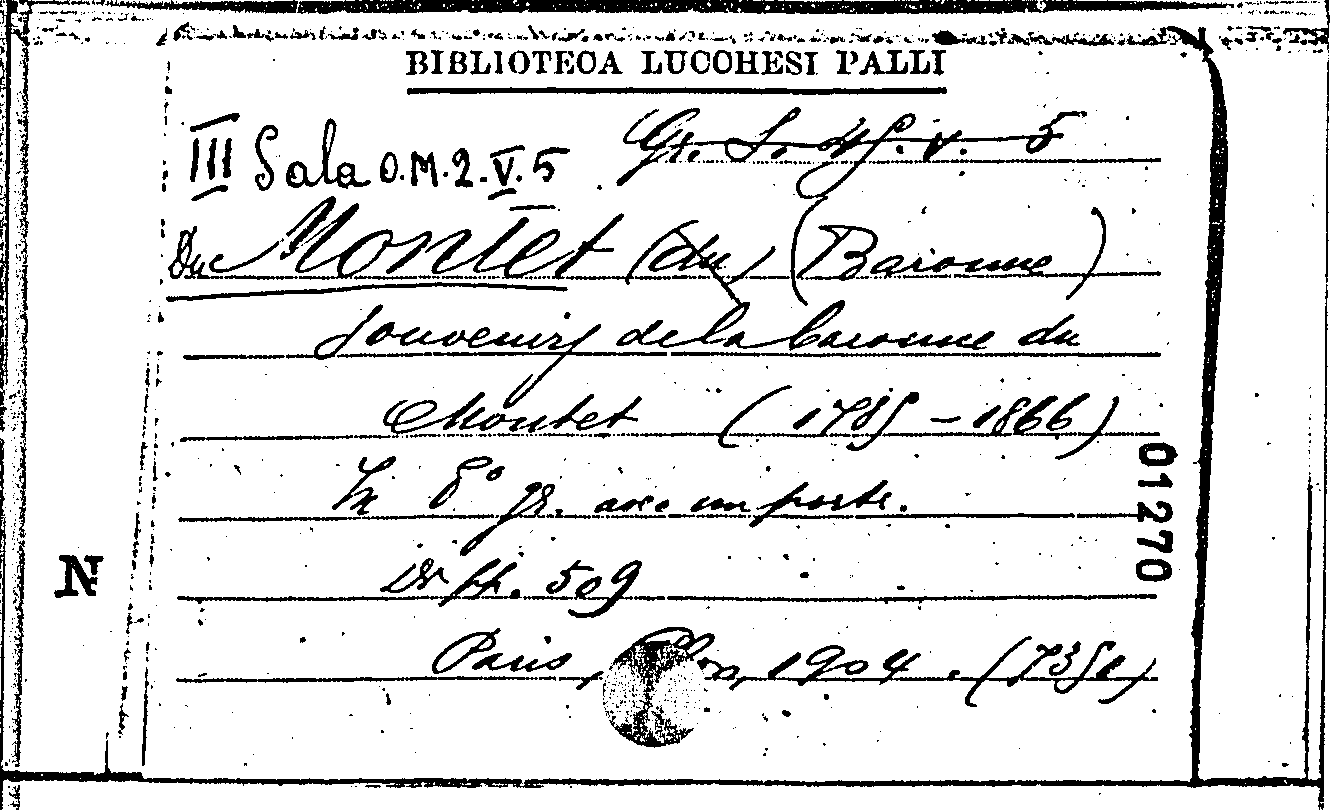 BIBLIOTECA LUCCHESI PALLI
III Sala O.M.2.V.5 Gr. S. 48. v. 5
Du Montet (du) (Baronne)
Souvenirs de la baronne du
Montet (1785 – 1866)
In 8° gr. avec un portr.
Di pp. 509
Paris, Plon, 1904. (7358)
01270
N